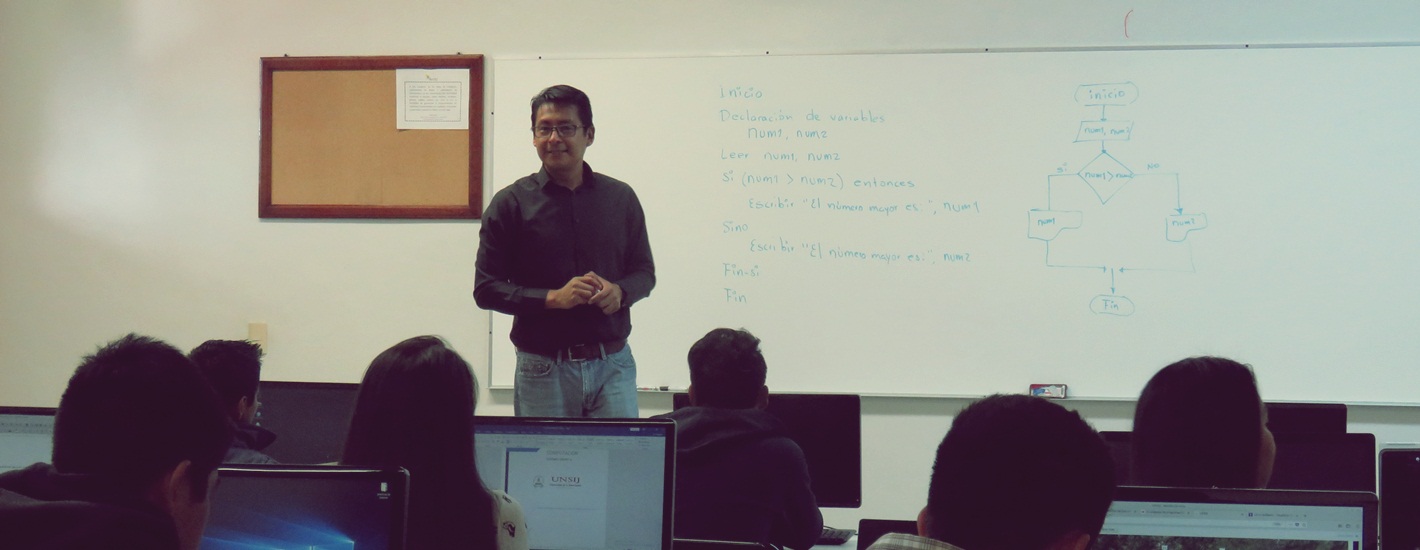 Inicio
Declaración de variables
num1, num2
Leer num1, num2
Si (num1 > num2) entonces
Escribir "El número mayor es:", num1
Sino
Escribir "El número mayor es:", num2
Fin-si
Fin
inicio
num1, num2
si
num1 > num2
NO
num1
num2
Fin
UNSIJ